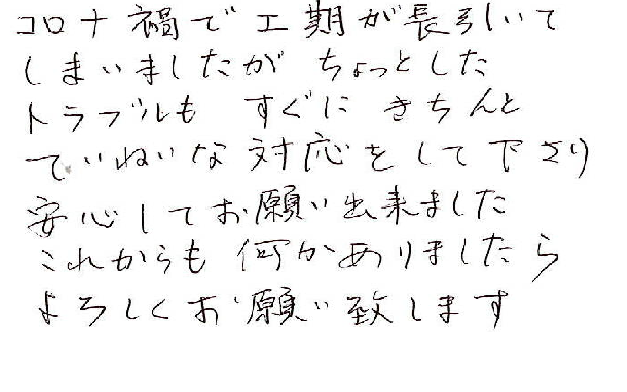 コロナ禍で工期が長引いて
しまいましたが ちょっとした
トラブルも すぐに きちんと
ていねいな対応をして下さり
安心してお願い出来ました
これからも 何かありましたら
よろしくお願い致します